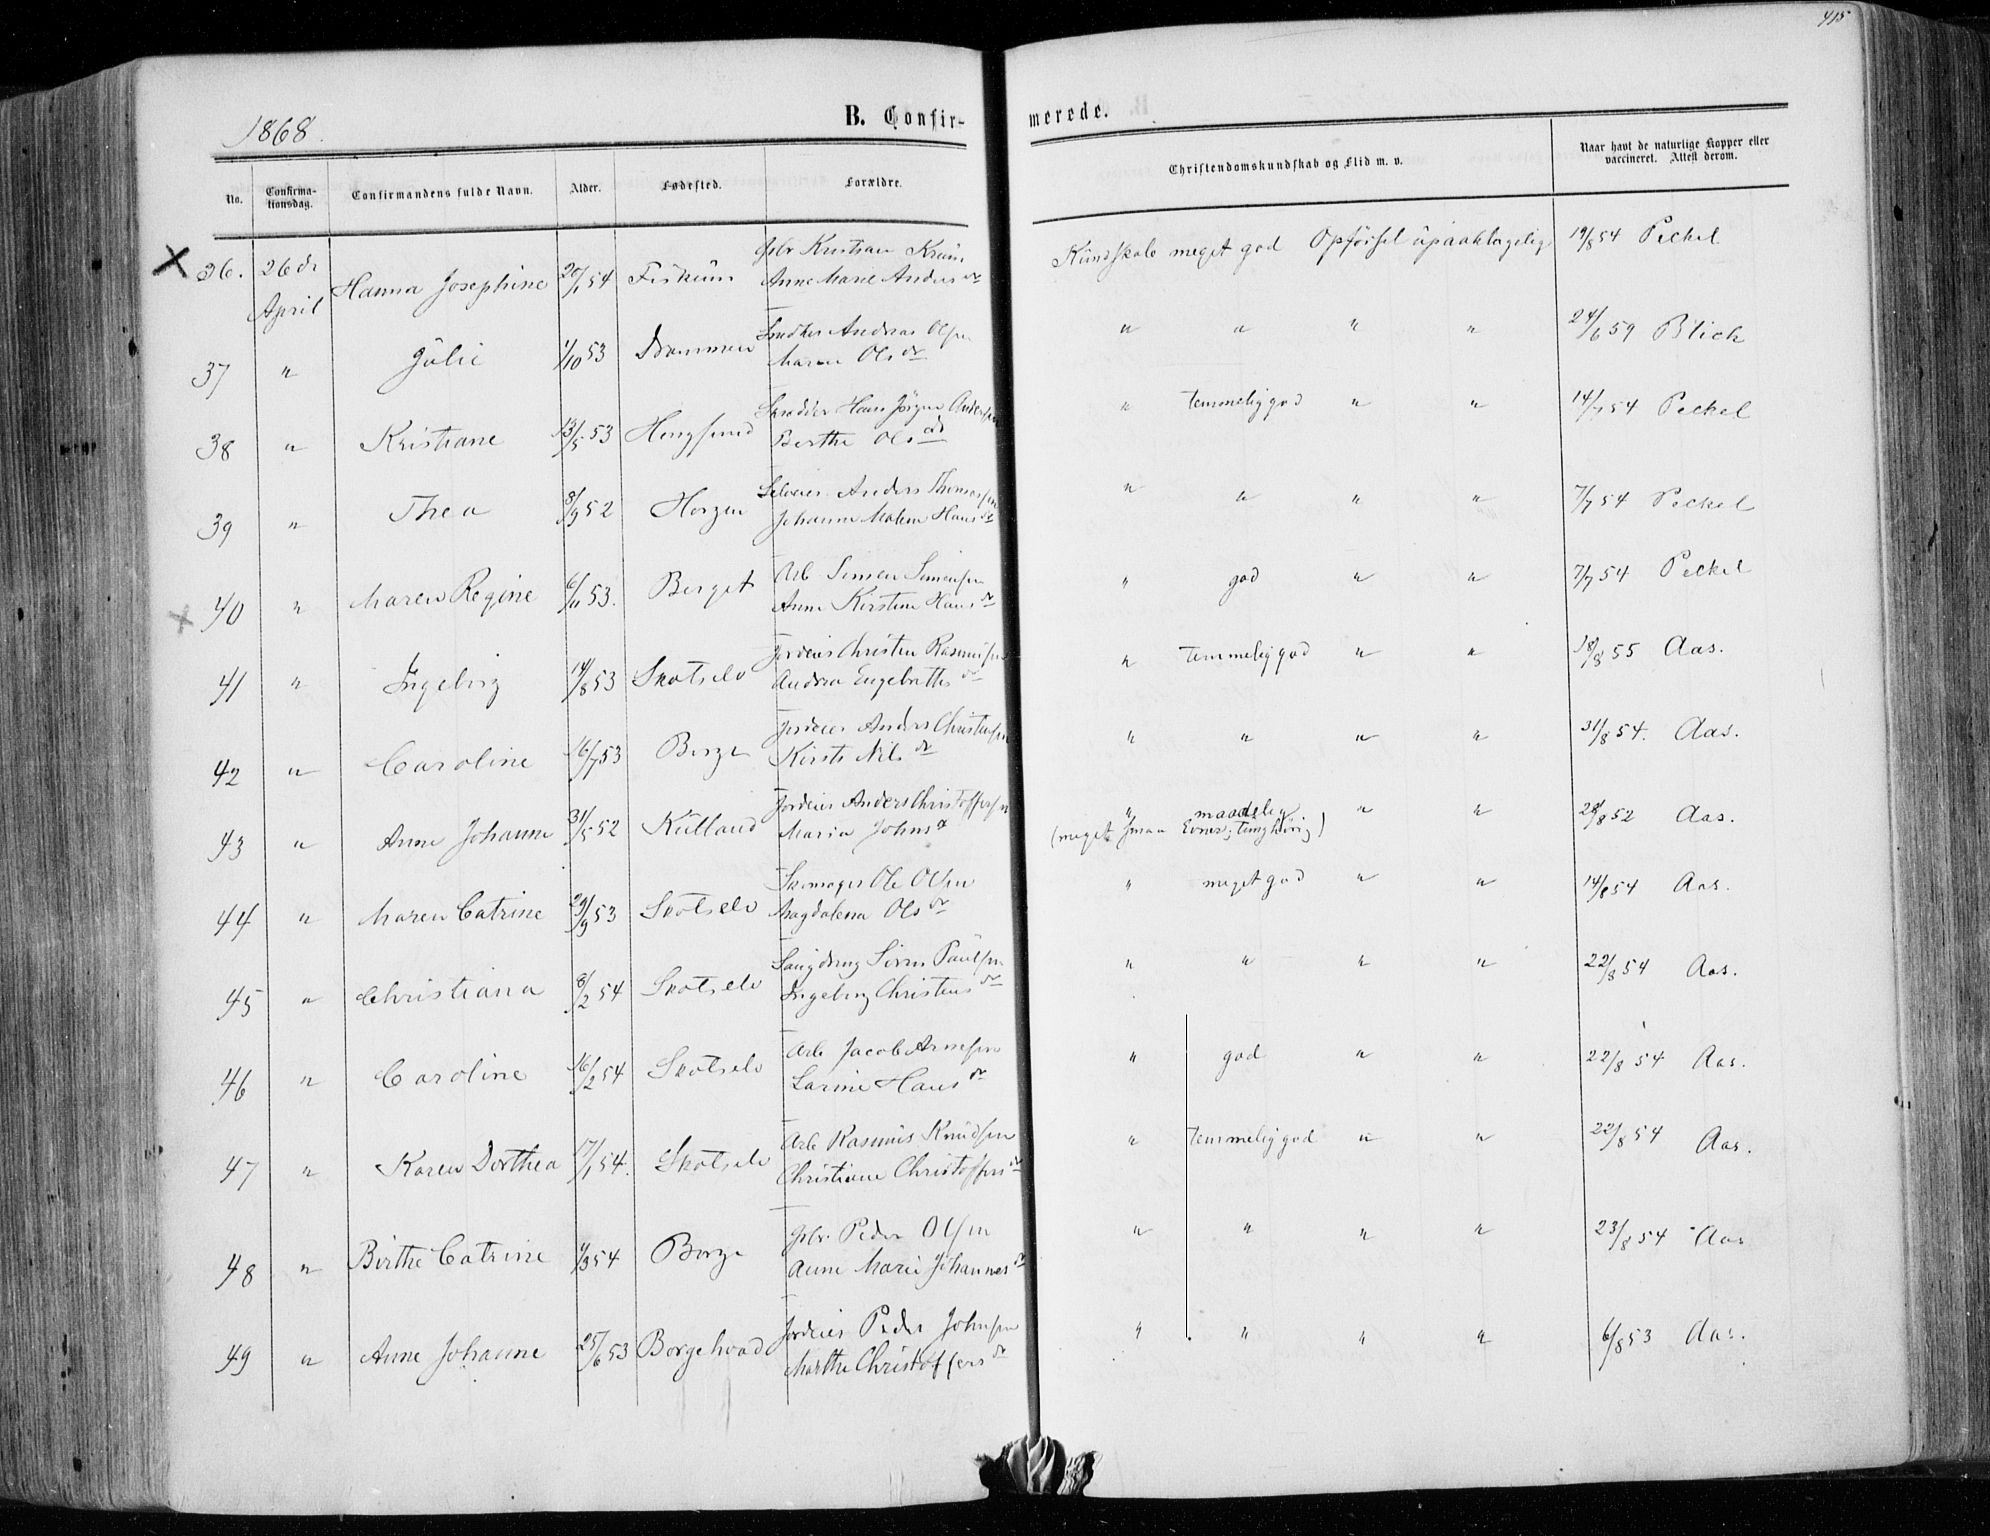 415
1868.
B. Confir-
merede.
No.
Confirma-
tionsdag.
Confirmandens fulde Navn.
Alder.
Fødested.
Forældre.
Christendomskundskab og Flid m. v.
Naar havt de naturlige Kopper eller
vaccineret. Attest derom.
36. 26de April Hanna Josephine 20/1 54 Fiskum Kristian
Anne Marie Anders dr
Kundskab meget god Opførsel upaaklagelig 19/8 54 Peckel
37 " Julie 1/10 53 Drammen Andreas Olsen
Maren Ols dr
" " " " 24/6 59 Blich
38 " Kristiane 13/5 53 Skrædder Hans Jørgen Andersen
Berthe Ols dr
" temmelig god " " 14/7 54 Peckel
39 " Thea 8/9 52 Horgen Selveier Anders Thomassen
Johanne Malene Hans dr
" " " " 7/7 54 Peckel
40 " Maren Regine 6/11 53. Berget Arb Simen Simensen
Anne Kirstine Hans dr
" god " " 7/7 54 Peckel
41 " Ingeborg 14/8 53 Skotselv Jordeier Christen Rasmussen
Andrea Engebreths dr
" temmelig god " " 18/8 55 Aas.
42 " Caroline 16/7 53 Borge Jordeier Anders Christensen
Kirsti Nils dr
" " " " 31/8 54. Aas.
43 " Anne Johanne 31/5 52 Kulland Jordeier Anders Christoffersen
Maria Johns dr
" maadelig " " 28/8 52 Aas.
(meget smaa Evner; tunghørig)
44 " Maren Catrine 29/9 53 Skotselv Skomager Ole Olsen
Magdalena Ols dr
" meget god " " 14/8 54 Aas.
45 " Christiana 8/2 54 Skotselv Søren Paulsen
Ingeborg Christens dr
" " " " 22/8 54 Aas.
46 " Caroline 16/2 54 Skotselv Arb Jacob Arnesen
Larine Hans dr
" god " " 22/8 54 Aas.
47 " Karen Dorthea 17/1 54. Skotselv Arb Rasmus Knudsen
Christiane Christoffers dr
" temmelig god " " 22/8 54 Aas.
48 " Birthe Catrine 4/3 54 Borge Peder Olsen
Anne Marie Johannes dr
" " " " 23/8 54 Aas
49 " Anne Johanne 25/6 53 Borgehoad Jordeier Peder Johnsen
Marthe Christoffers dr
" " " " 6/8 53 Aas.